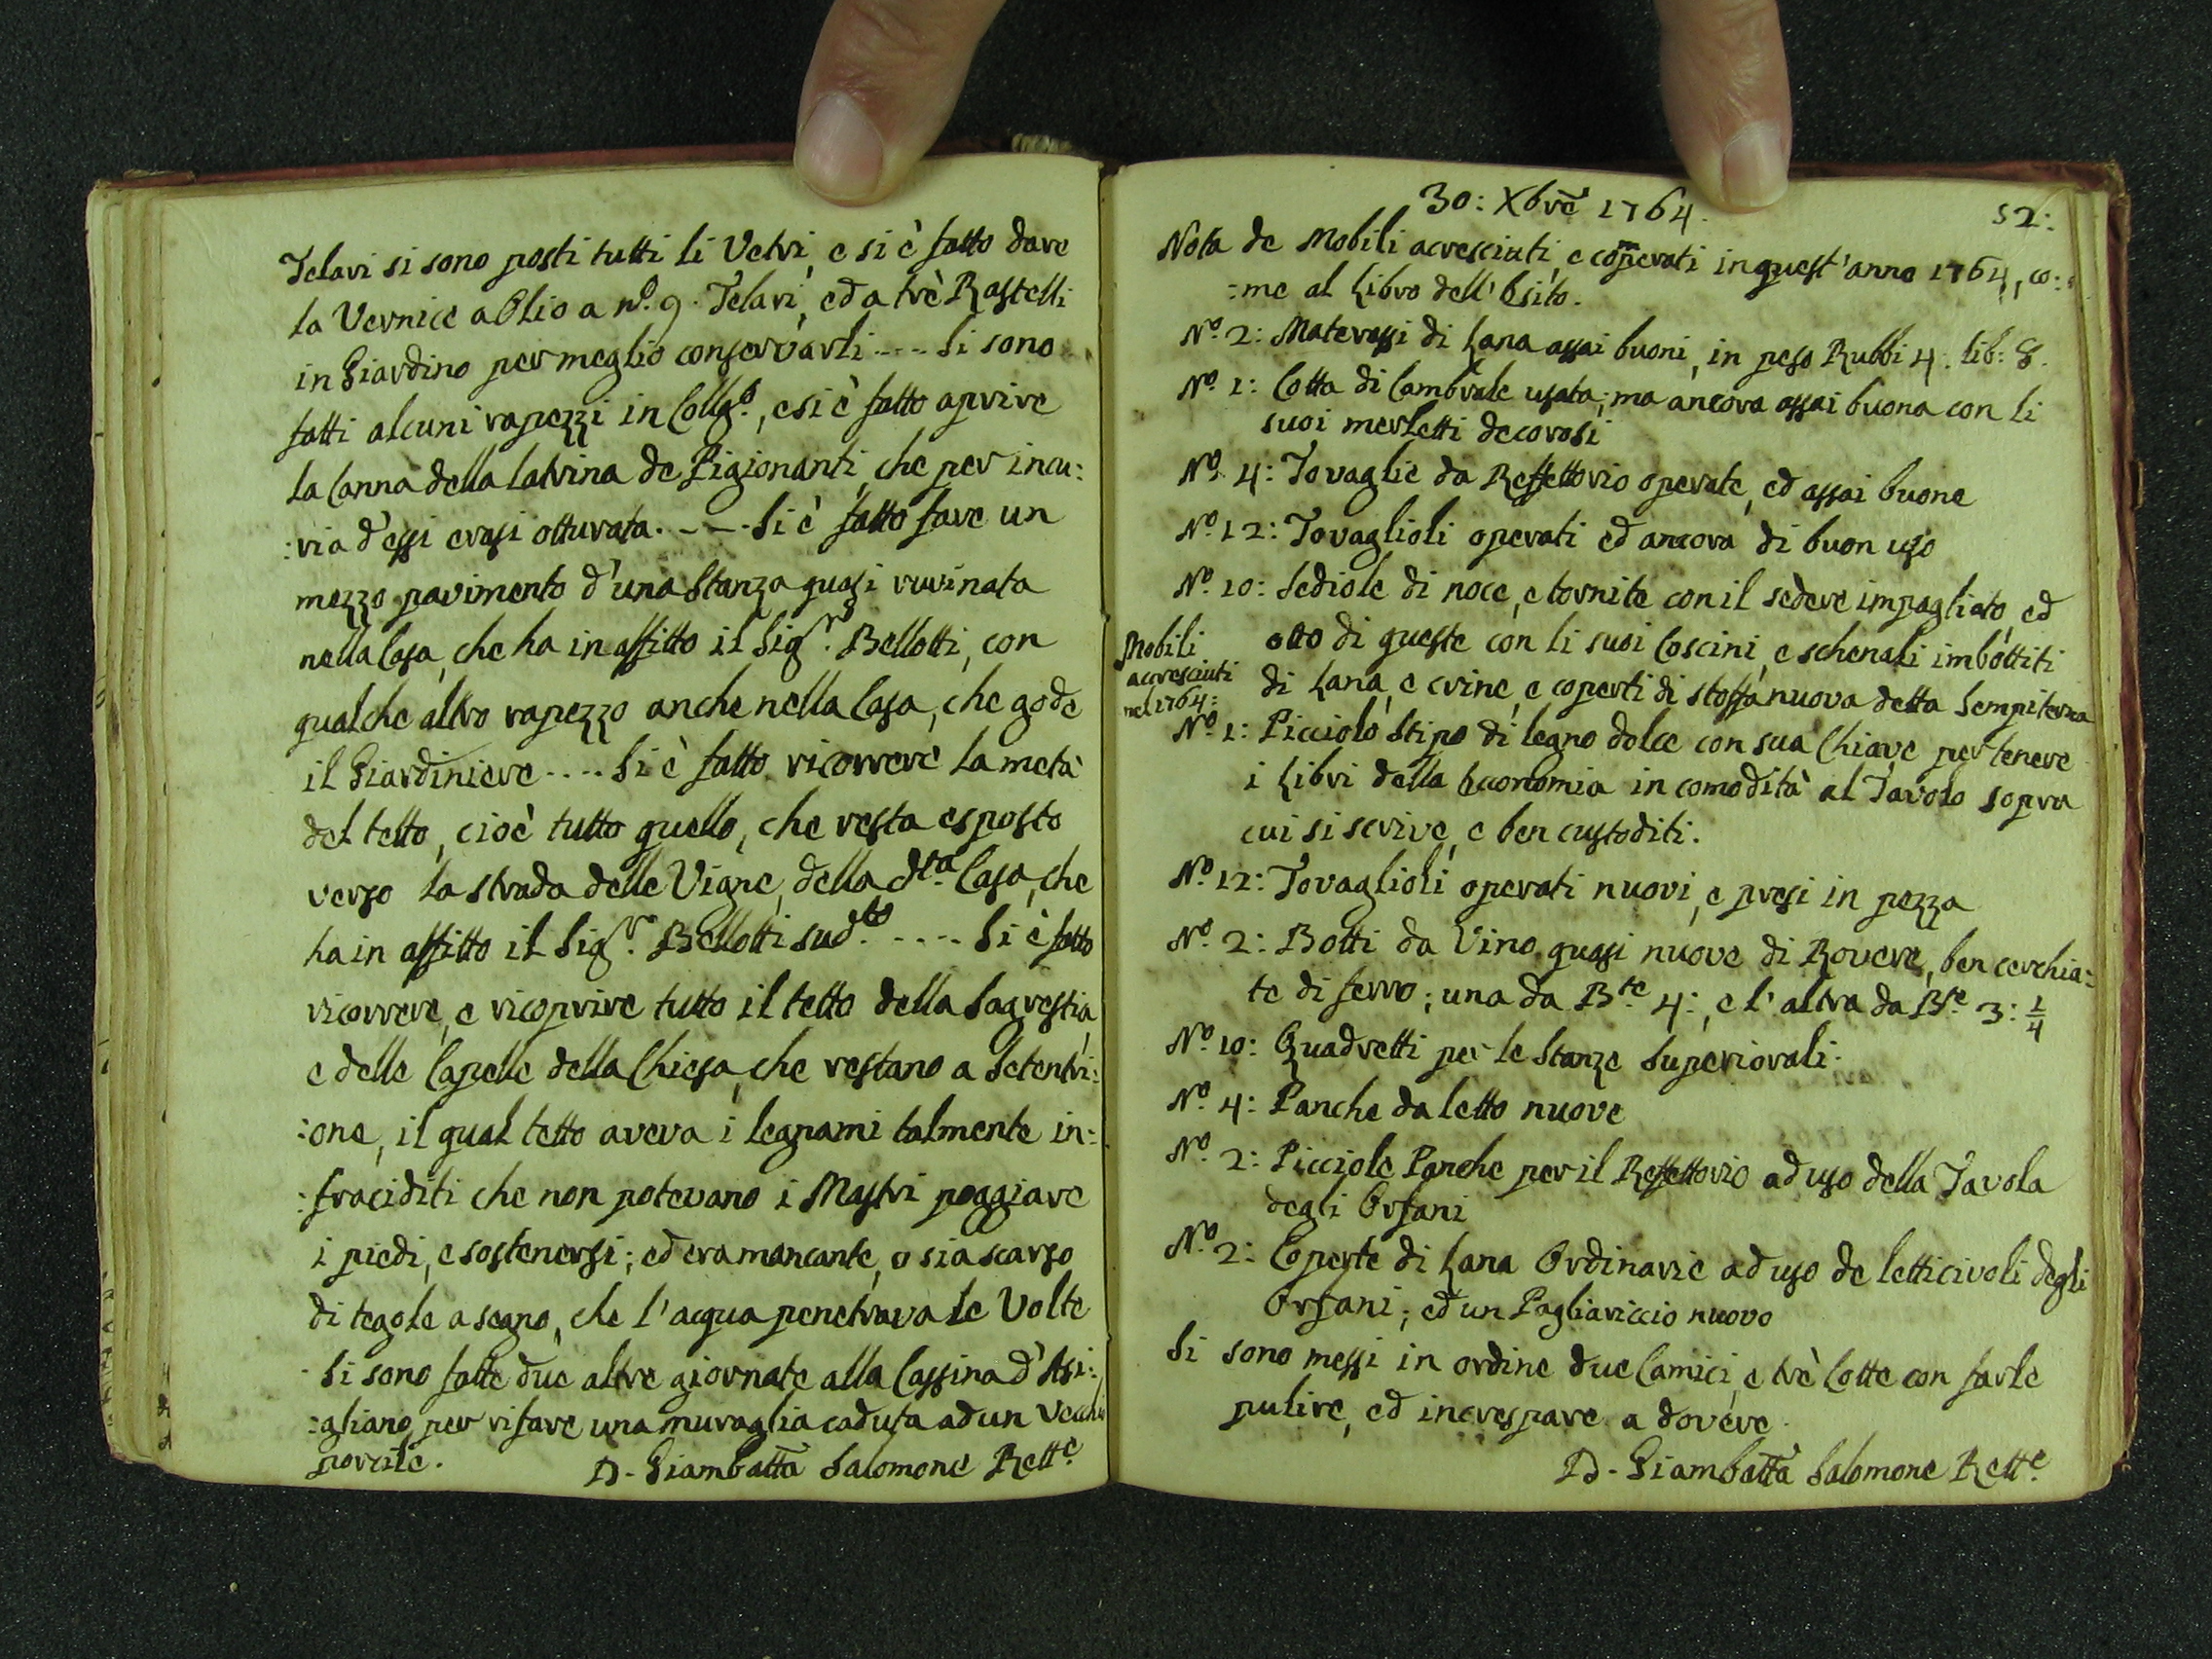 Telari si sono posti tutti li Vetri, e si è fatto dare
la Vernice a Olio a nº. 9. Telari, ed a trè Rastelli
in Giardino per meglio conservarli .... Si sono
fatti alcuni rapezzi in Collgº., e si è fatto aprire
la Canna della latrina de Pigionanti, che per incu:
:ria d'essi erasi otturata. - - - Si è fatto fare un
mezzo pavimento d'una Stanza quasi ruvinata
nella Casa, che ha in affitto il Sigr. Bellotti, con
qualche altro rapezzo anche nella Casa, che gode
il Giardiniere .... Si è fatto ricorrere la metà
del tetto, cioè tutto quello, che resta esposto
verso la strada delle Vigne, della dta. Casa, che
ha in affitto il Sigr. Bellotti sudto. .... Si è fatto
ricorrere, e ricoprire tutto il tetto della Sagrestia,
e delle Capelle della Chiesa, che restano a Setentri:
:one, il qual tetto aveva i legnami talmente in:
:fraciditi che non potevano i Mastri poggiare
i piedi, e sostenersi; ed era mancante, o sia scarso
di tegole a segno, che l'acqua penetrava le Volte
Si sono fatte due altre giornate alla Cassina d'Asi:
:gliano per rifare una muraglia caduta ad un Vecchio
porcile. D. Giambatta Salomone Rette.
30: Xbre 1764.
52:
Nota de Mobili acresciuti, e comperati in quest'anno 1764, co:
:me al Libro dell'Esito.
Nº. 2: Materassi di Lana assai buoni, in peso Rubbi 4. lib: 8.
Nº. 1: Cotta di Cambrale usata; ma ancora assai buona con li
suoi merletti decorosi
Nº. 4: Tovaglie da Reffettorio operate, ed assai buone
Nº. 12: Tovaglioli operati ed ancora di buon uso
Nº. 10: Sediole di noce, e tornite con il sedere impagliato, ed
otto di queste con li suoi Coscini, e schenali imbottiti
di Lana, e crine, e coperti di stoffa nuova detta Sempiterna
Mobili
acresciuti
nel 1764:
Nº. 1: Picciolo Stipo di legno dolce con sua Chiave per tenere
i Libri della Economia in comodità al Tavolo sopra
cui si scrive, e ben custoditi.
Nº. 12: Tovaglioli operati nuovi, e presi in pezza
Nº. 2: Botti da Vino quasi nuove di Rovere, ben cerchia:
te di ferro; una da Bte. 4:, e l'altra da Bte. 3: 1/4
Nº. 10: Quadretti per le Stanze Superiorali.
Nº. 4: Panche da letto nuove
Nº. 2: Picciole Panche per il Reffettorio ad uso della Tavola
degli Orfani
Nº. 2: Coperte di Lana Ordinarie ad uso de letticivoli degli
Orfani; ed un Pagliariccio nuovo
Si sono messi in ordine due Camici, e trè Cotte con farle
pulire, ed increspare a dovere.
D. Giambatta Salomone Rette.